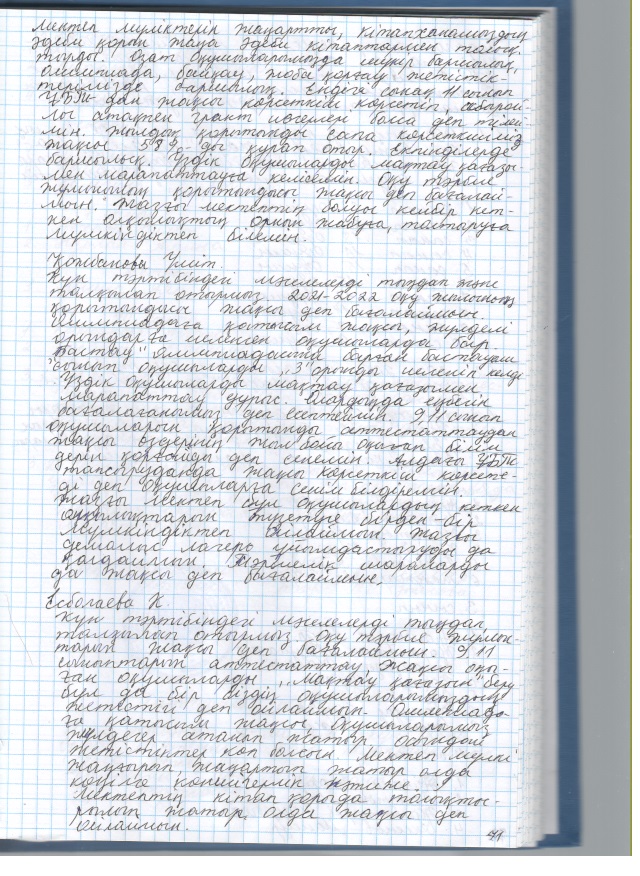 мектеп мүліктерін жаңартты, кітапханамыздың
әдеби қорын жаңа әдеби кітаптармен толық
тырды. Озат оқушыларымызда шүкір баршылық,
олимпиада, байқау, жоба қорғау жетістік-
терімізде баршылық. Ендігі соңғы 11 сынып
ҰБТ-дан жақсы көрсеткіш көрсетіп, абырой-
лы атақпен грант иегерлері болса деп тілей-
мін. Жылдық қорытынды сапа көрсеткішіміз
жақсы 58%-ды құрап отыр. Екпінділерде
баршылық. Үздік оқушыларды мақтау қағазы-
мен марапаттауға келісемін. Оқу тәрбие
жұмысының қорытындысы жақсы деп бағалай-
мын. Жазғы мектептің болуы кейбір кет-
кен олқылықтың орнын жабуға, толтыруға
мүмкіндіктеп білемін.
Қожбанова Үміт.
Күн тәртібіндегі мәселелерді тыңдап және
талқылап отырмыз. 2021-2022 оқу жылының
қорытындысы жақсы деп бағалаймын.
Олимпиадаға қатысым жақсы, жүлделі
орындарға иеленген оқушыларда бар.
"Бастау" олимпиадасына барған бастауыш
сынып оқушыларды "3" орынды иеленіп келді
Үздік оқушыларды мақтау қағазымен
марапаттау дұрыс. Олардыңда еңбегін
бағалағанымыз деп есептеймін. 9, 11 сынып
оқушыларын қорытынды аттестаттаудан
жақсы өздерінің жыл бойы оқыған білім
дерін қорғайды деп сенемін. Алдағы ҰБТ
тапсыруданда жақсы көрсеткіш көрсете-
ді деп оқушыларға сенім білдіремін.
Жазғы мектеп бұл оқушылардың кеткен
олқылықтарын түзетуге бірден-бір
мүмкіндіктеп ойлаймын жазғы
демалыс лагерь ұйымдастыруды да
қолдаймын. Тәрбиелік шараларды
да жақсы деп бағалаймын.
Есболаева К.
Күн тәртібіндегі мәселелерді тыңдап,
талқылып отырмыз. Оқу тәрбие жұмыс-
тарын жақсы деп бағалаймын. 9, 11
сыныптарын аттестаттау, жақсы оқы-
ған оқушыларды "Мақтау қағазын" беру
бұл да бір біздің оқушыларымыздың
жетістігі деп ойлаймын. Олимпиада-
ға қатысым жақсы, оқушыларымыз
жүлдегер атанып жатыр осындай
жетістіктер көп болсын. Мектеп мүлкі
жаңғырып, жаңартып жатыр олда
көңілге көншігерлік нәтиже.
Мектептің кітап қорыда толықты-
рылып жатыр, олда жақсы деп
ойлаймын.